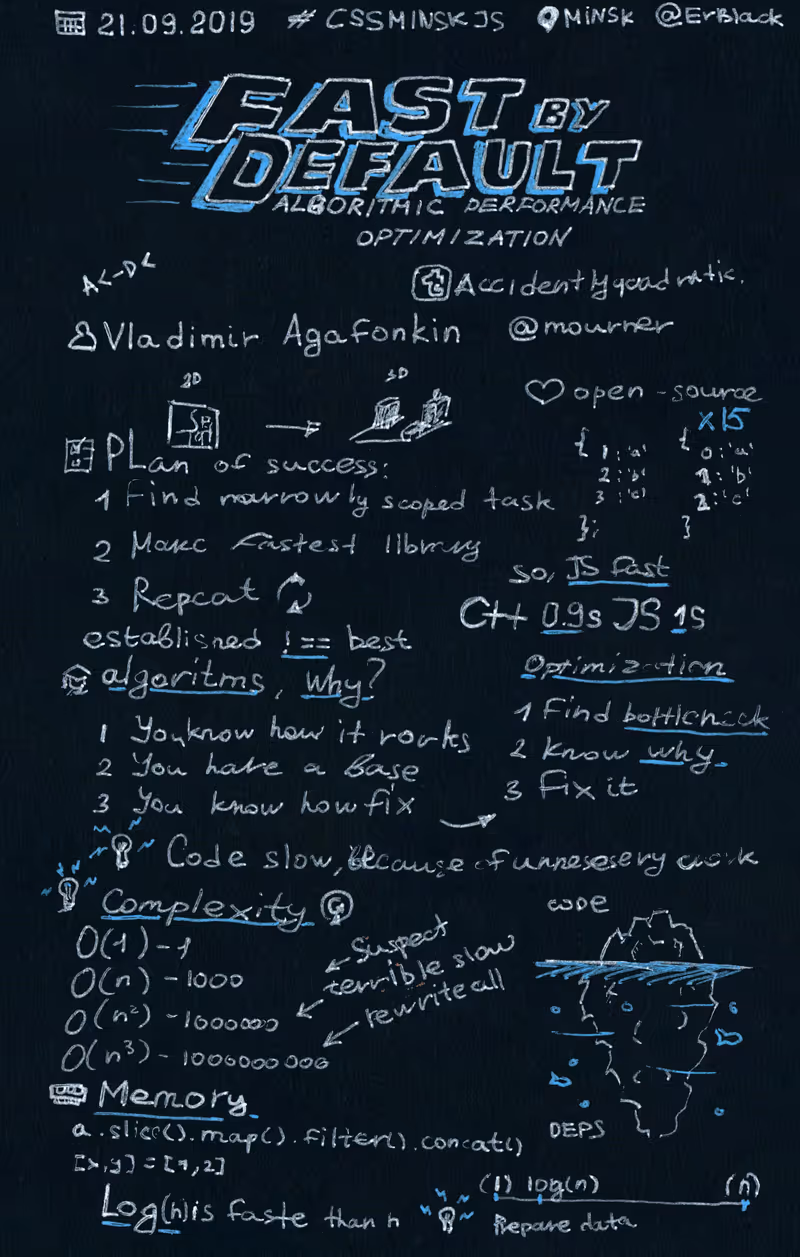 21.09.2019 # CSSMINSKJS MINSK @ErBlack
FAST BY
DEFAULT
ALGORITHMIC PERFORMANCE
OPTIMIZATION
t Accidently quadratic.
Vladimir Agafonkin @mourner
2D 3D
open-source
x15
{ {
1:'a' 0:'a'
2:'b' 1:'b'
3:'c' 2:'c'
}; }
Plan of success:
1 Find narrowly scoped task
2 Make fastest library
3 Repeat
so, JS fast
C++ 0.9s JS 1s
established !== best
algoritms, why?
1 You know how it works
2 You have a base
3 You know how fix
Optimization
1 Find bottleneck
2 Know why
3 Fix it
Code slow, because of unnesesery work
Complexity
O(1) - 1
O(n) - 1000
O(n²) - 1000000
O(n³) - 1000000000
suspect
terrible slow
rewrite all
CODE
DEPS
Memory
a.slice().map().filter().concat()
[x,y] = [1,2]
Log(n) is faste than n
(1) log(n) (n)
Repare data